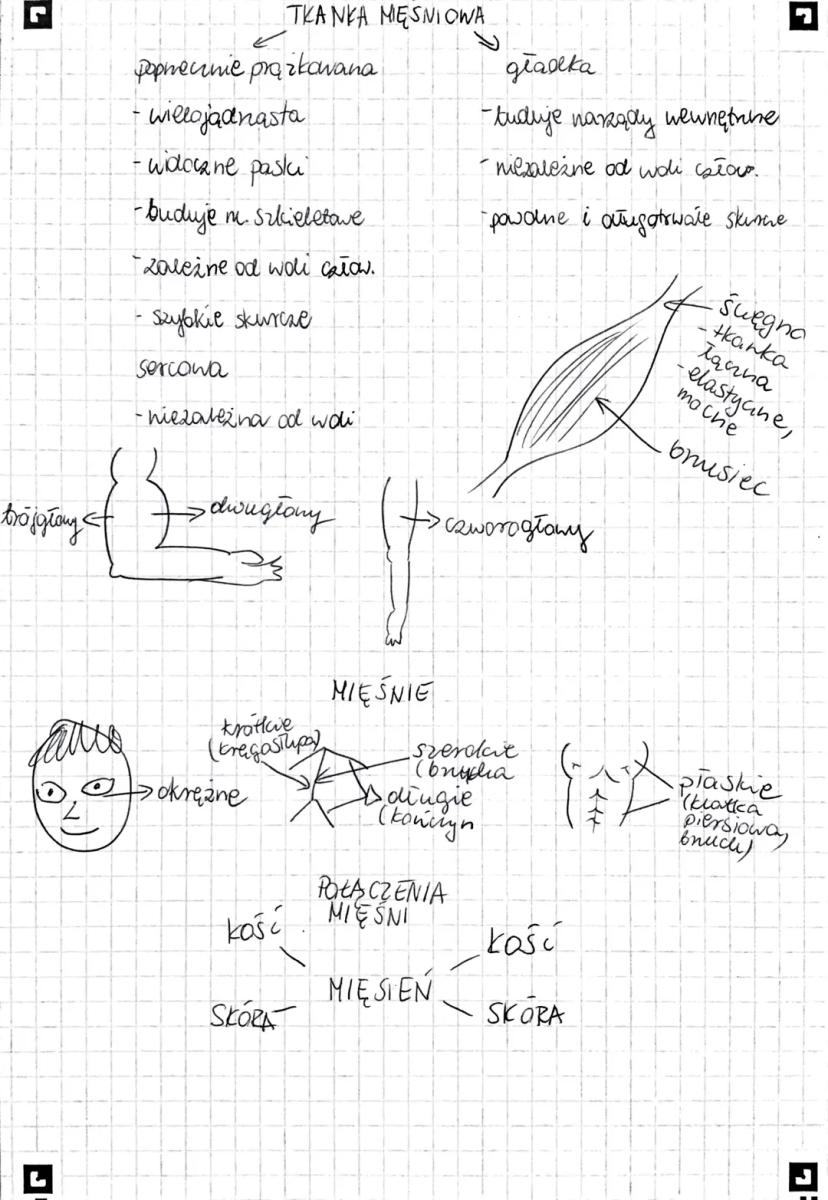 TKANKA MIĘŚNIOWA
poprzecznie prążkowana
- wielojądrzasta
- widoczne paski
- buduje m. szkieletowe
- zależne od woli człow.
- szybkie skurcze
sercowa
- niezależna od woli
gładka
- buduje narządy wewnętrzne
- niezależne od woli człow.
- powolne i długotrwałe skurcze
ścięgno
- tkanka
łączna
- elastyczne,
mocne
brzusiec
trójgłowy
dwugłowy
czworogłowy
MIĘŚNIE
okrężne
krótkie
(kręgosłupa)
szerokie
(brzucha
długie
(kończyn
płaskie
(klatka
piersiowa,
brzuch)
POŁĄCZENIA
MIĘŚNI
KOŚĆ
KOŚĆ
MIĘSIEŃ
SKÓRA
SKÓRA